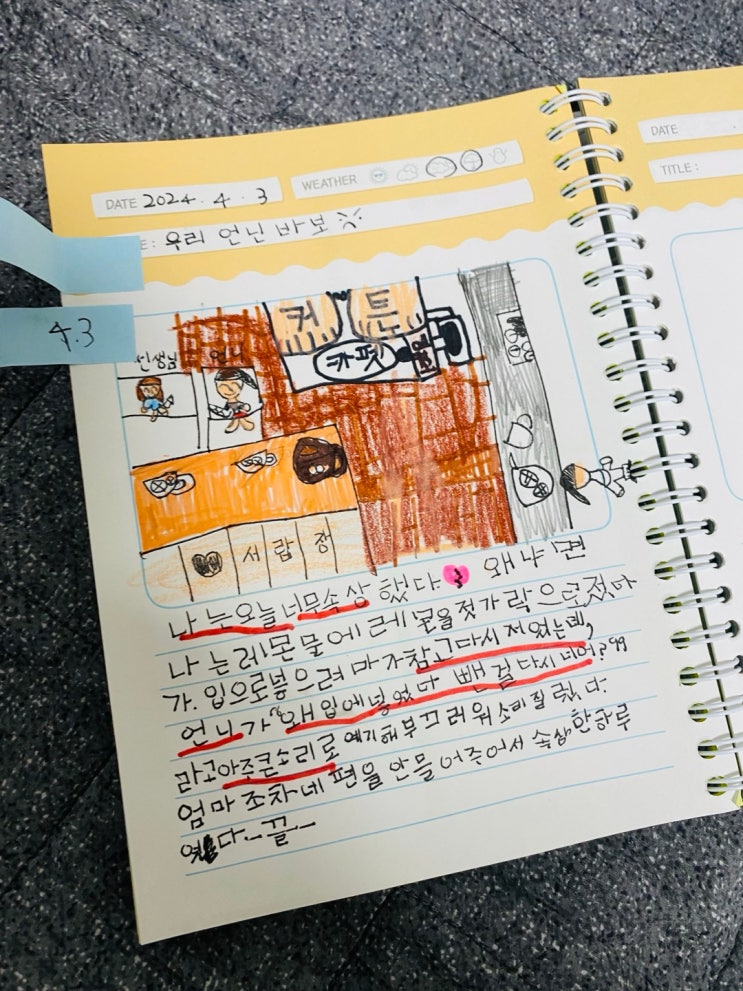 DATE 2024. 4. 3
WEATHER
우리 언닌 바보
4.3
DATE
TITLE :
커 튼
카펫
선생님 언니
서 랍 장
나 는 오늘 너무 속 상 했 다 왜 냐 면
나 는 레몬 물 에 든 레몬을 젓 가 락 으로 젓 다
가. 입으로 넣 으 려 다 가 참고 다시 저 었 는데,
언 니 가 "왜 입에 넣 었 다 뺀 걸 다시 너어?"
라고 아주 큰 소리로 얘기해 부 끄 러 워 소리 질 렀 다.
엄마 조차 내 편을 안 들 어 주어서 속상 한 하루
였다. 끝.